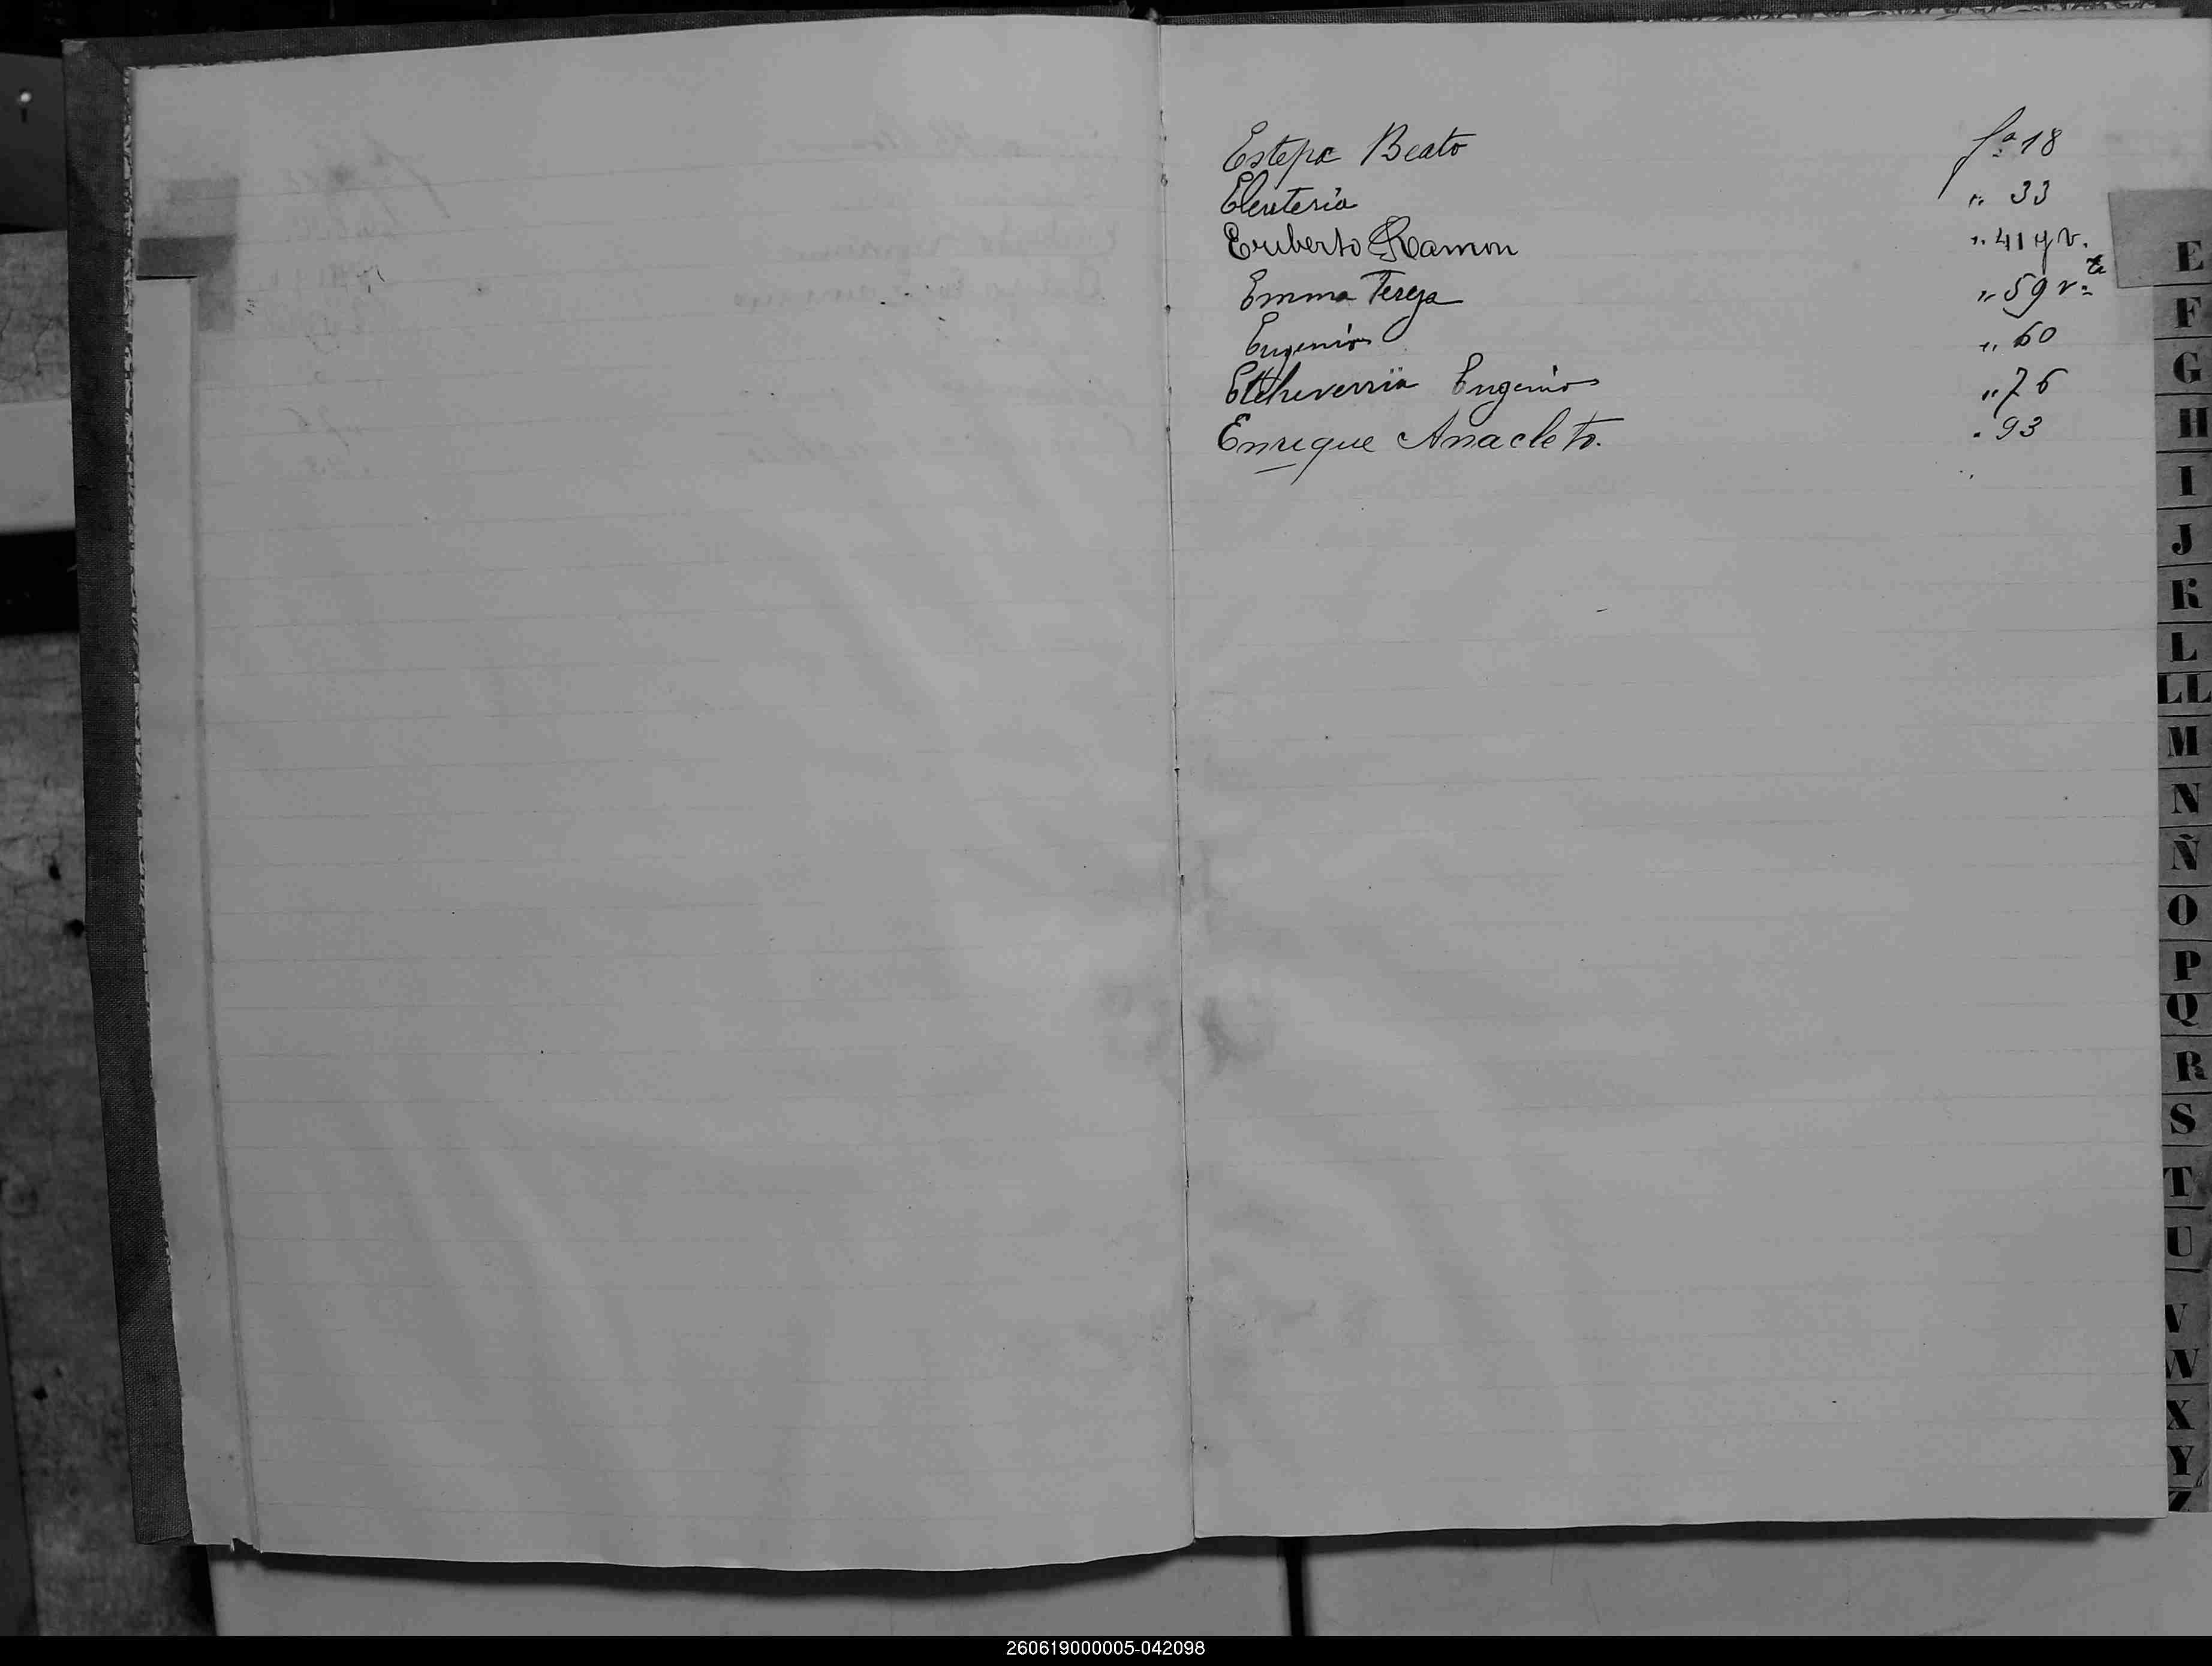 Estepa Beato fº 18
Eleuteria " 33
Eriberto Ramon " 41 y v.
Emma Teresa " 59 vta
Eugenio " 60
Etcheverria Eugenio " 76
Enrique Anacleto. " 93
E
F
G
H
I
J
K
L
LL
M
N
Ñ
O
P
Q
R
S
T
U
V
W
X
Y
Z
260619000005-042098